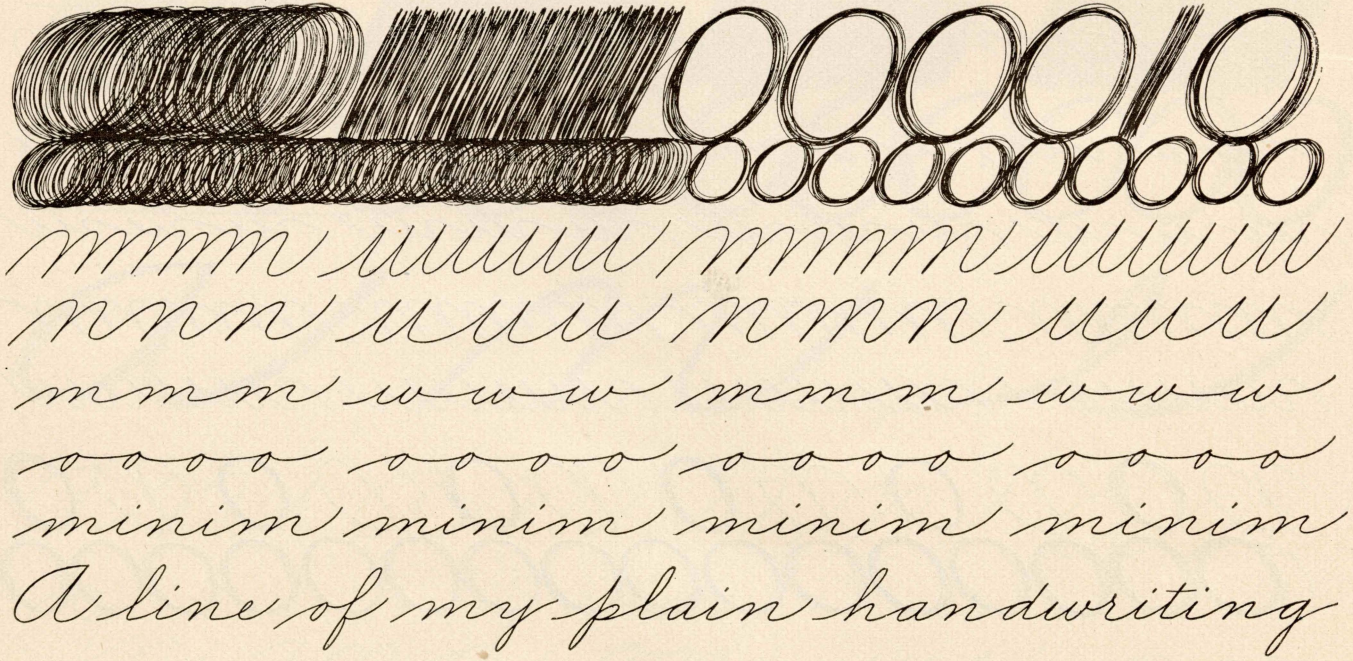 mmmm uuuuu mmmm uuuuu
n n n u u u n m n u u u
m m m w w w m m m w w w
o o o o o o o o o o o o o o o o
minim minim minim minim
A line of my plain handwriting